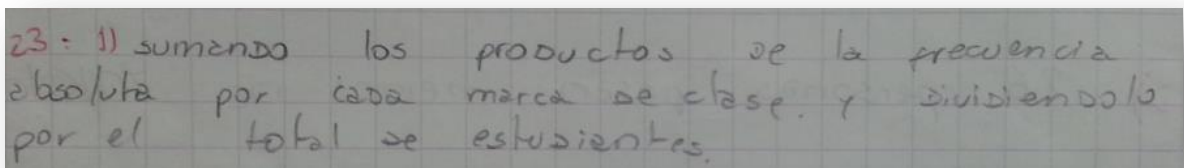 23: 1) sumando los productos de la frecuencia
absoluta por cada marca de clase. y dividiendolo
por el total de estudiantes.